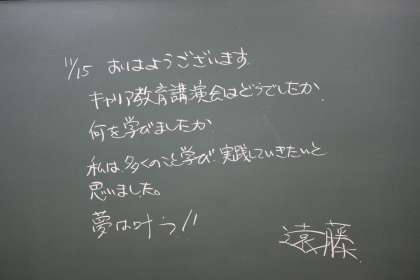 11/15 おはようございます
キャリア教育講演会はどうでしたか.
何を学びましたか.
私は、多くのこと学び、実践していきたいと
思いました。
夢は叶う!!
遠藤.